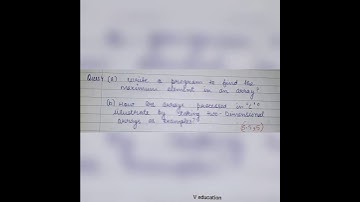 Ques4 (a) Write a program to find the
maximum element in an array?
(b) How are arrays processed in 'C'?
illustrate by taking two-dimensional
arrays as examples?
V education